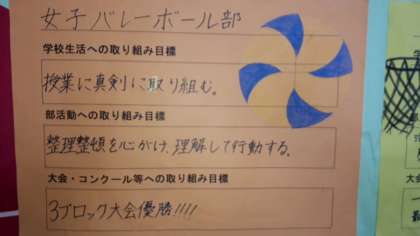 女子バレーボール部
学校生活への取り組み目標
授業に真剣に取り組む。
部活動への取り組み目標
整理整頓を心がけ、理解して行動する。
大会・コンクール等への取り組み目標
3ブロック大会優勝!!!!